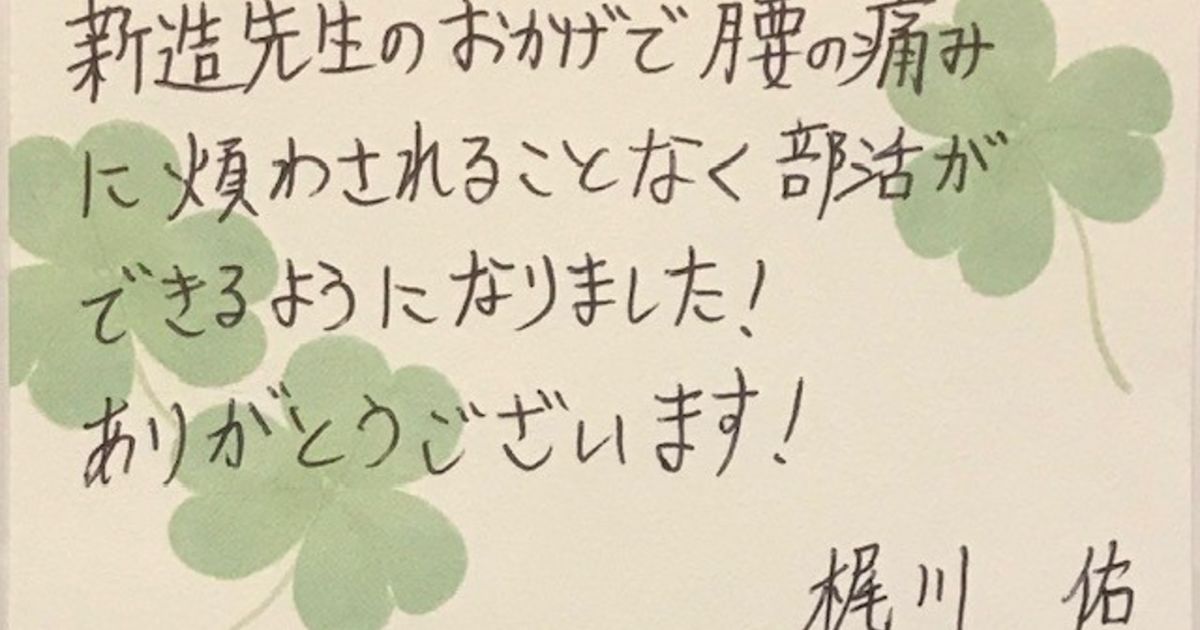 新造先生のおかげで腰の痛み
に煩わされることなく部活が
できるようになりました!
ありがとうございます!
梶川 佑